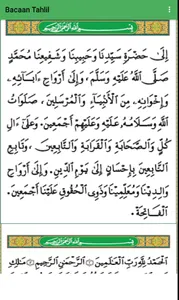 Bacaan Tahlil
بسم الله الرحمن الرحيم
إِلَى حَضْرَةِ سَيِّدِنَا وَحَبِيبِنَا وَشَفِيعِنَا مُحَمَّدٍ
صَلَّى اللهُ عَلَيْهِ وَسَلَّمَ، وَإِلَى أَرْوَاحِ ءَابَائِهِ
وَإِخْوَانِهِ مِنَ الْأَنْبِيَاءِ وَالْمُرْسَلِينَ، صَلَوَاتُ
اللهِ وَسَلَامُهُ عَلَيْهِ وَعَلَيْهِمْ أَجْمَعِينَ، وَعَلَى آلِ
كُلٍّ وَالصَّحَابَةِ وَالْقَرَابَةِ وَالتَّابِعِينَ وَتَابِعِ
التَّابِعِينَ بِإِحْسَانٍ إِلَى يَوْمِ الدِّينِ. وَإِلَى أَرْوَاحِ
وَالِدِينَا وَمُعَلِّمِينَا وَذَوِي الْحُقُوقِ عَلَيْنَا أَجْمَعِينَ.
الْفَاتِحَةُ.
بسم الله الرحمن الرحيم
الْحَمْدُ لِلَّهِ رَبِّ الْعَالَمِينَ الرَّحْمَنِ الرَّحِيمِ مَالِكِ